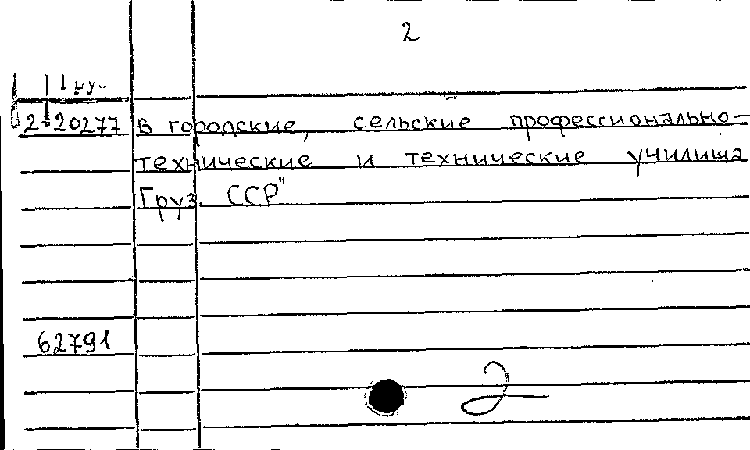 2
2-20277 в городские, сельские профессионально-
технические и технические училища
Груз. ССР"
62791
2